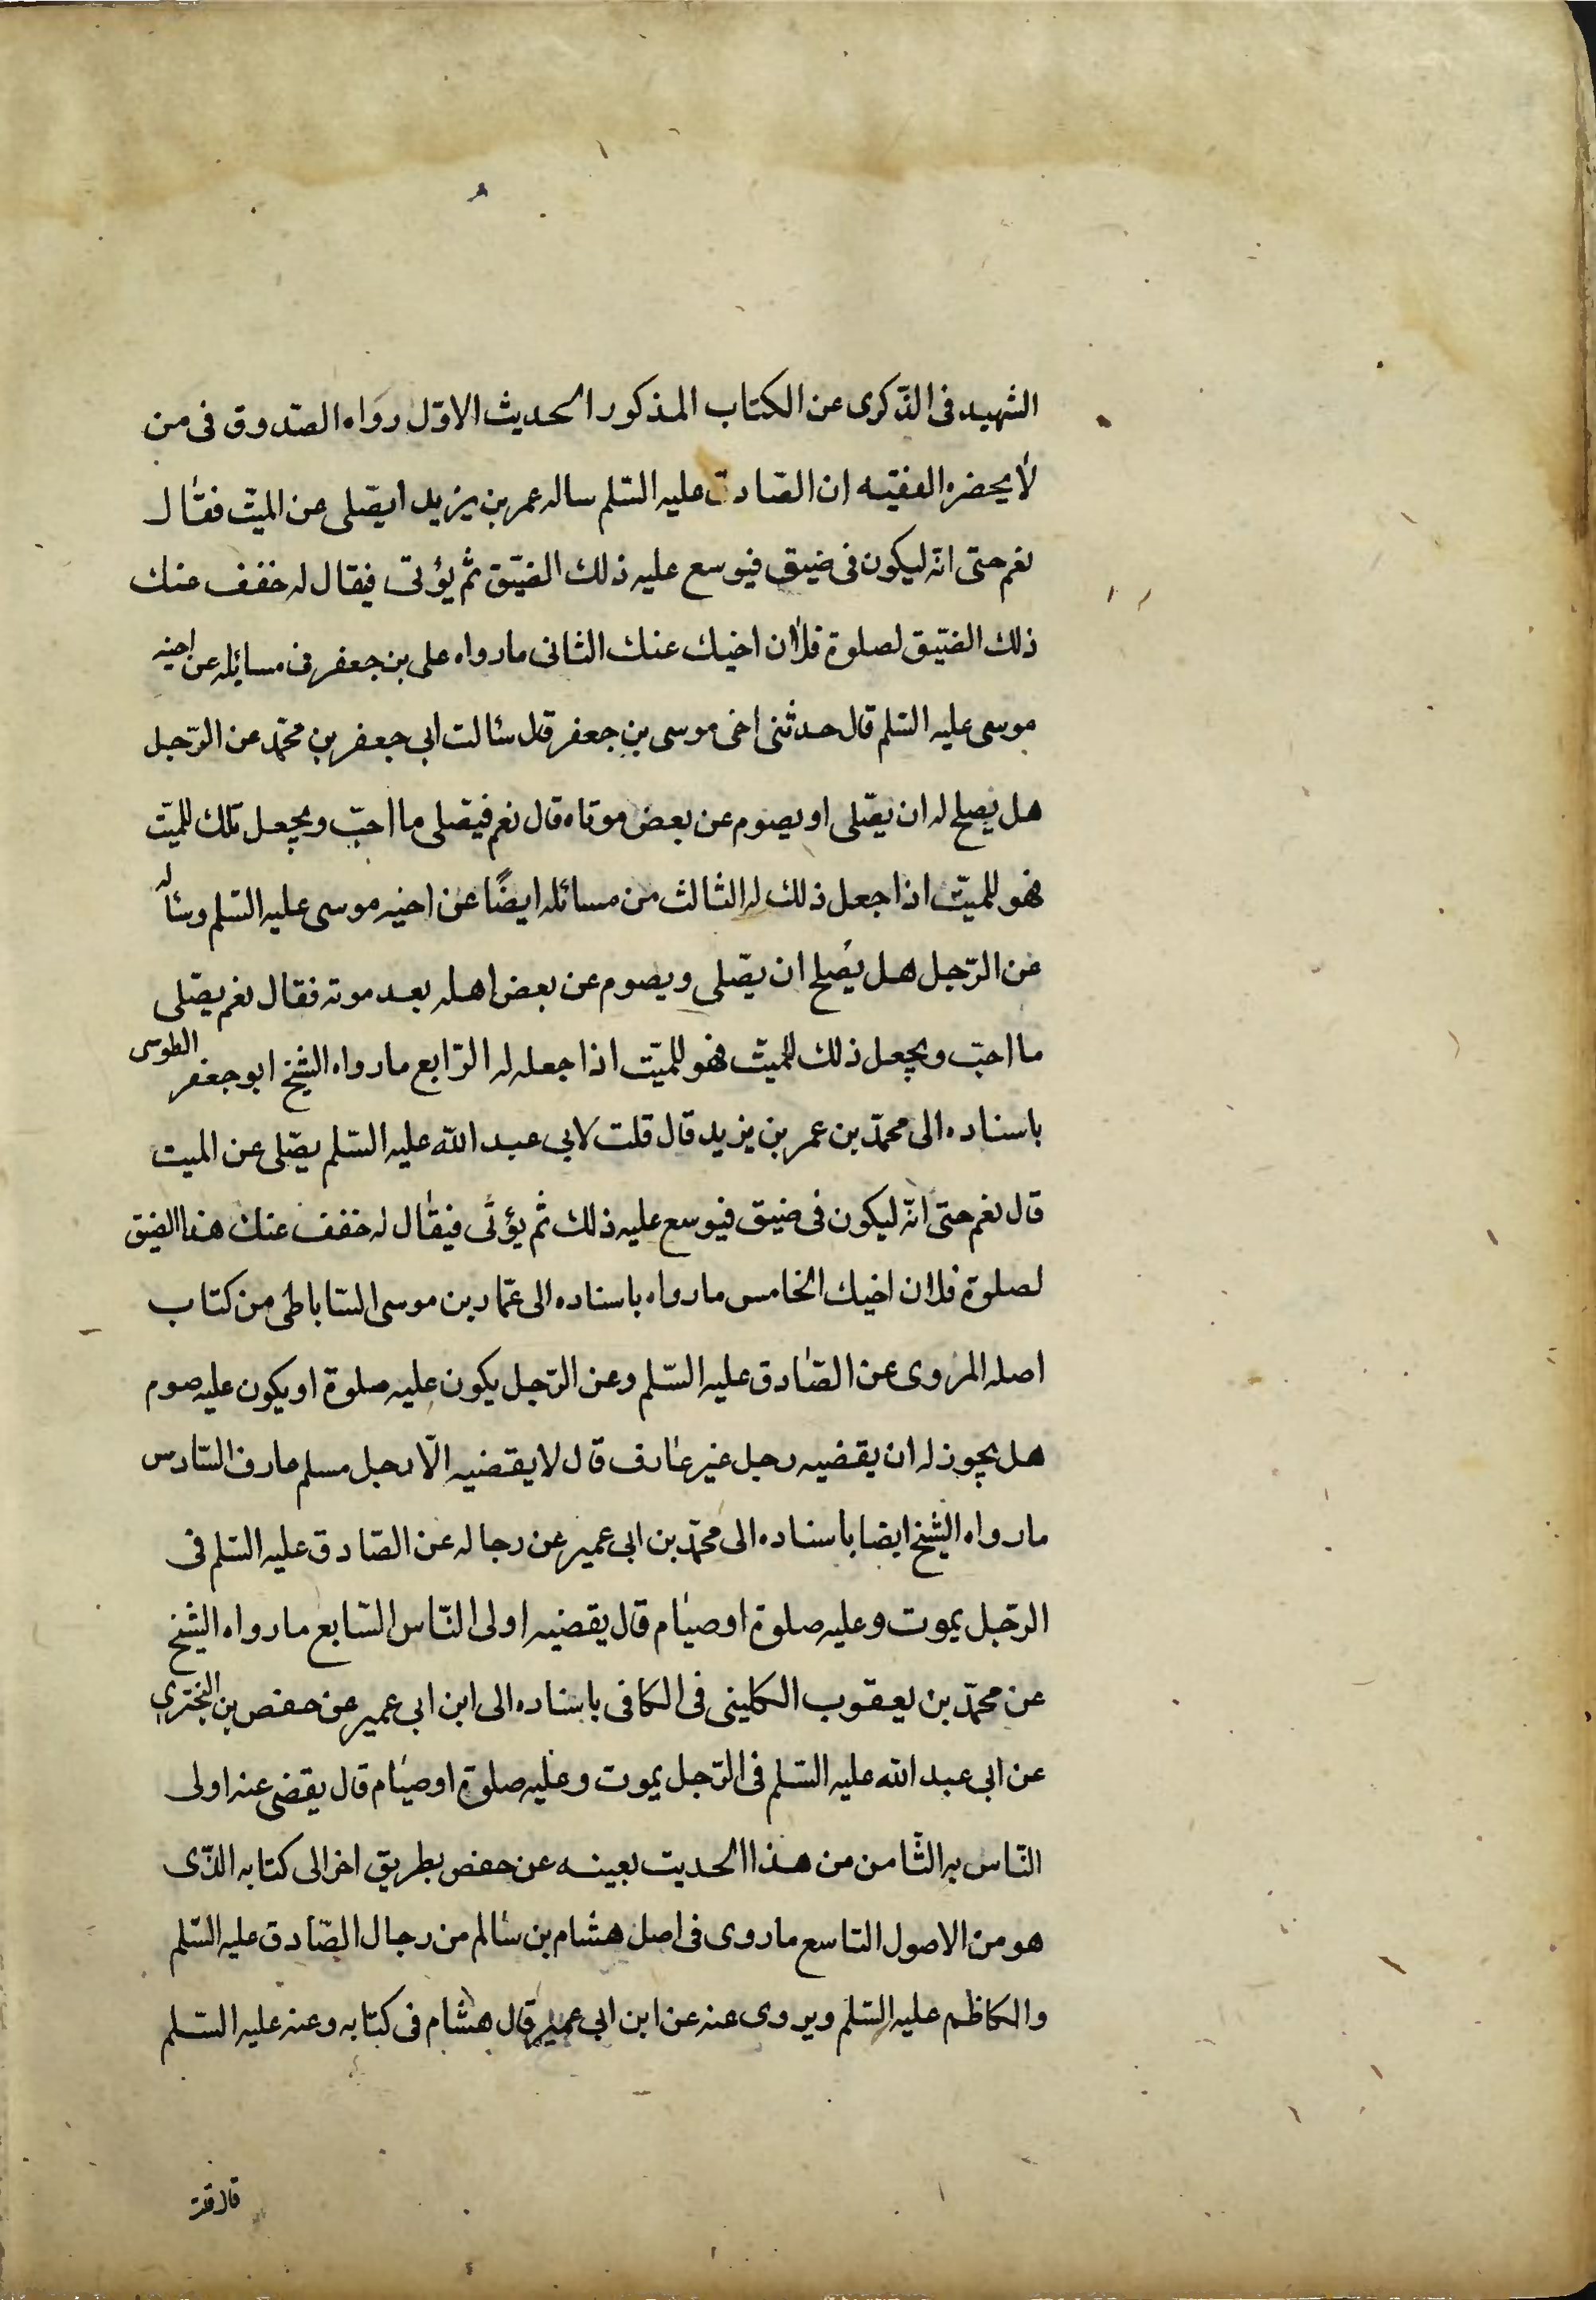 الشهيد فى الذّكرى عن الكتاب المذكور الحديث الاوّل رواه الصّدوق فى من
لا يحضره الفقيه ان الصّادق عليه السّلم ساله عمر بن يزيد ايصّلى عن الميّت فقال
نعم حتى انّه ليكون فى ضيق فيوسع عليه ذلك الضيّق ثم يؤتى فيقال له خفف عنك
ذلك الضيّق لصلوة فلان اخيك عنك الثانى مارواه على بن جعفر فى مسائله عن اخيه
موسى عليه السّلم قال حدثنى اخى موسى بن جعفر قال سئالت ابى جعفر بن محمّد عن الرّجل
هل يصلح له ان يصّلى او يصوم عن بعض موتاه قال نعم فيصّلى ما احبّ ويجعل تلك للميّت
فهو للميّت اذا جعل ذلك له الثالث من مسائله ايضًا عن اخيه موسى عليه السّلم وسئاله
عن الرّجل هل يصلح ان يصّلى ويصوم عن بعض اهله بعد موته فقال نعم يصّلى
ما احبّ ويجعل ذلك للميّت فهو للميّت اذا جعله له الرّابع مارواه الشيخ ابو جعفر الطوسى
باسناده الى محمّد بن عمر بن يزيد قال قلت لابى عبد الله عليه السّلم يصّلى عن الميت
قال نعم حتى انّه ليكون فى ضيق فيوسع عليه ذلك ثم يؤتى فيقال له خفف عنك هذا الضيق
لصلوة فلان اخيك الخامس مارواه باسناده الى عمّار بن موسى السّاباطى من كتاب
اصله المروى عن الصّادق عليه السّلم وعن الرّجل يكون عليه صلوة او يكون عليه صوم
هل يجوز له ان يقضيه رجل غير عارف قال لا يقضيه الّا رجل مسلم عارف السّادس
مارواه الشيخ ايضا باسناده الى محمّد بن ابى عمير عن رجاله عن الصّادق عليه السّلم فى
الرّجل يموت وعليه صلوة او صيام قال يقضيه اولى النّاس السّابع مارواه الشيخ
عن محمّد بن يعقوب الكلينى فى الكافى باسناده الى ابن ابى عمير عن حفص بن البخترى
عن ابى عبد الله عليه السّلم فى الرّجل يموت وعليه صلوة او صيام قال يقضى عنه اولى
النّاس به الثّامن من هذا الحديث بعينه عن حفص بطريق اخر الى كتابه الذّى
هو من الاصول التاسع ماروى فى اصل هشام بن سالم من رجال الصّادق عليه السّلم
والكاظم عليه السّلم ويروى عنه عن ابن ابى عمير قال هشام فى كتابه وعنه عليه السّلم
قال قلت